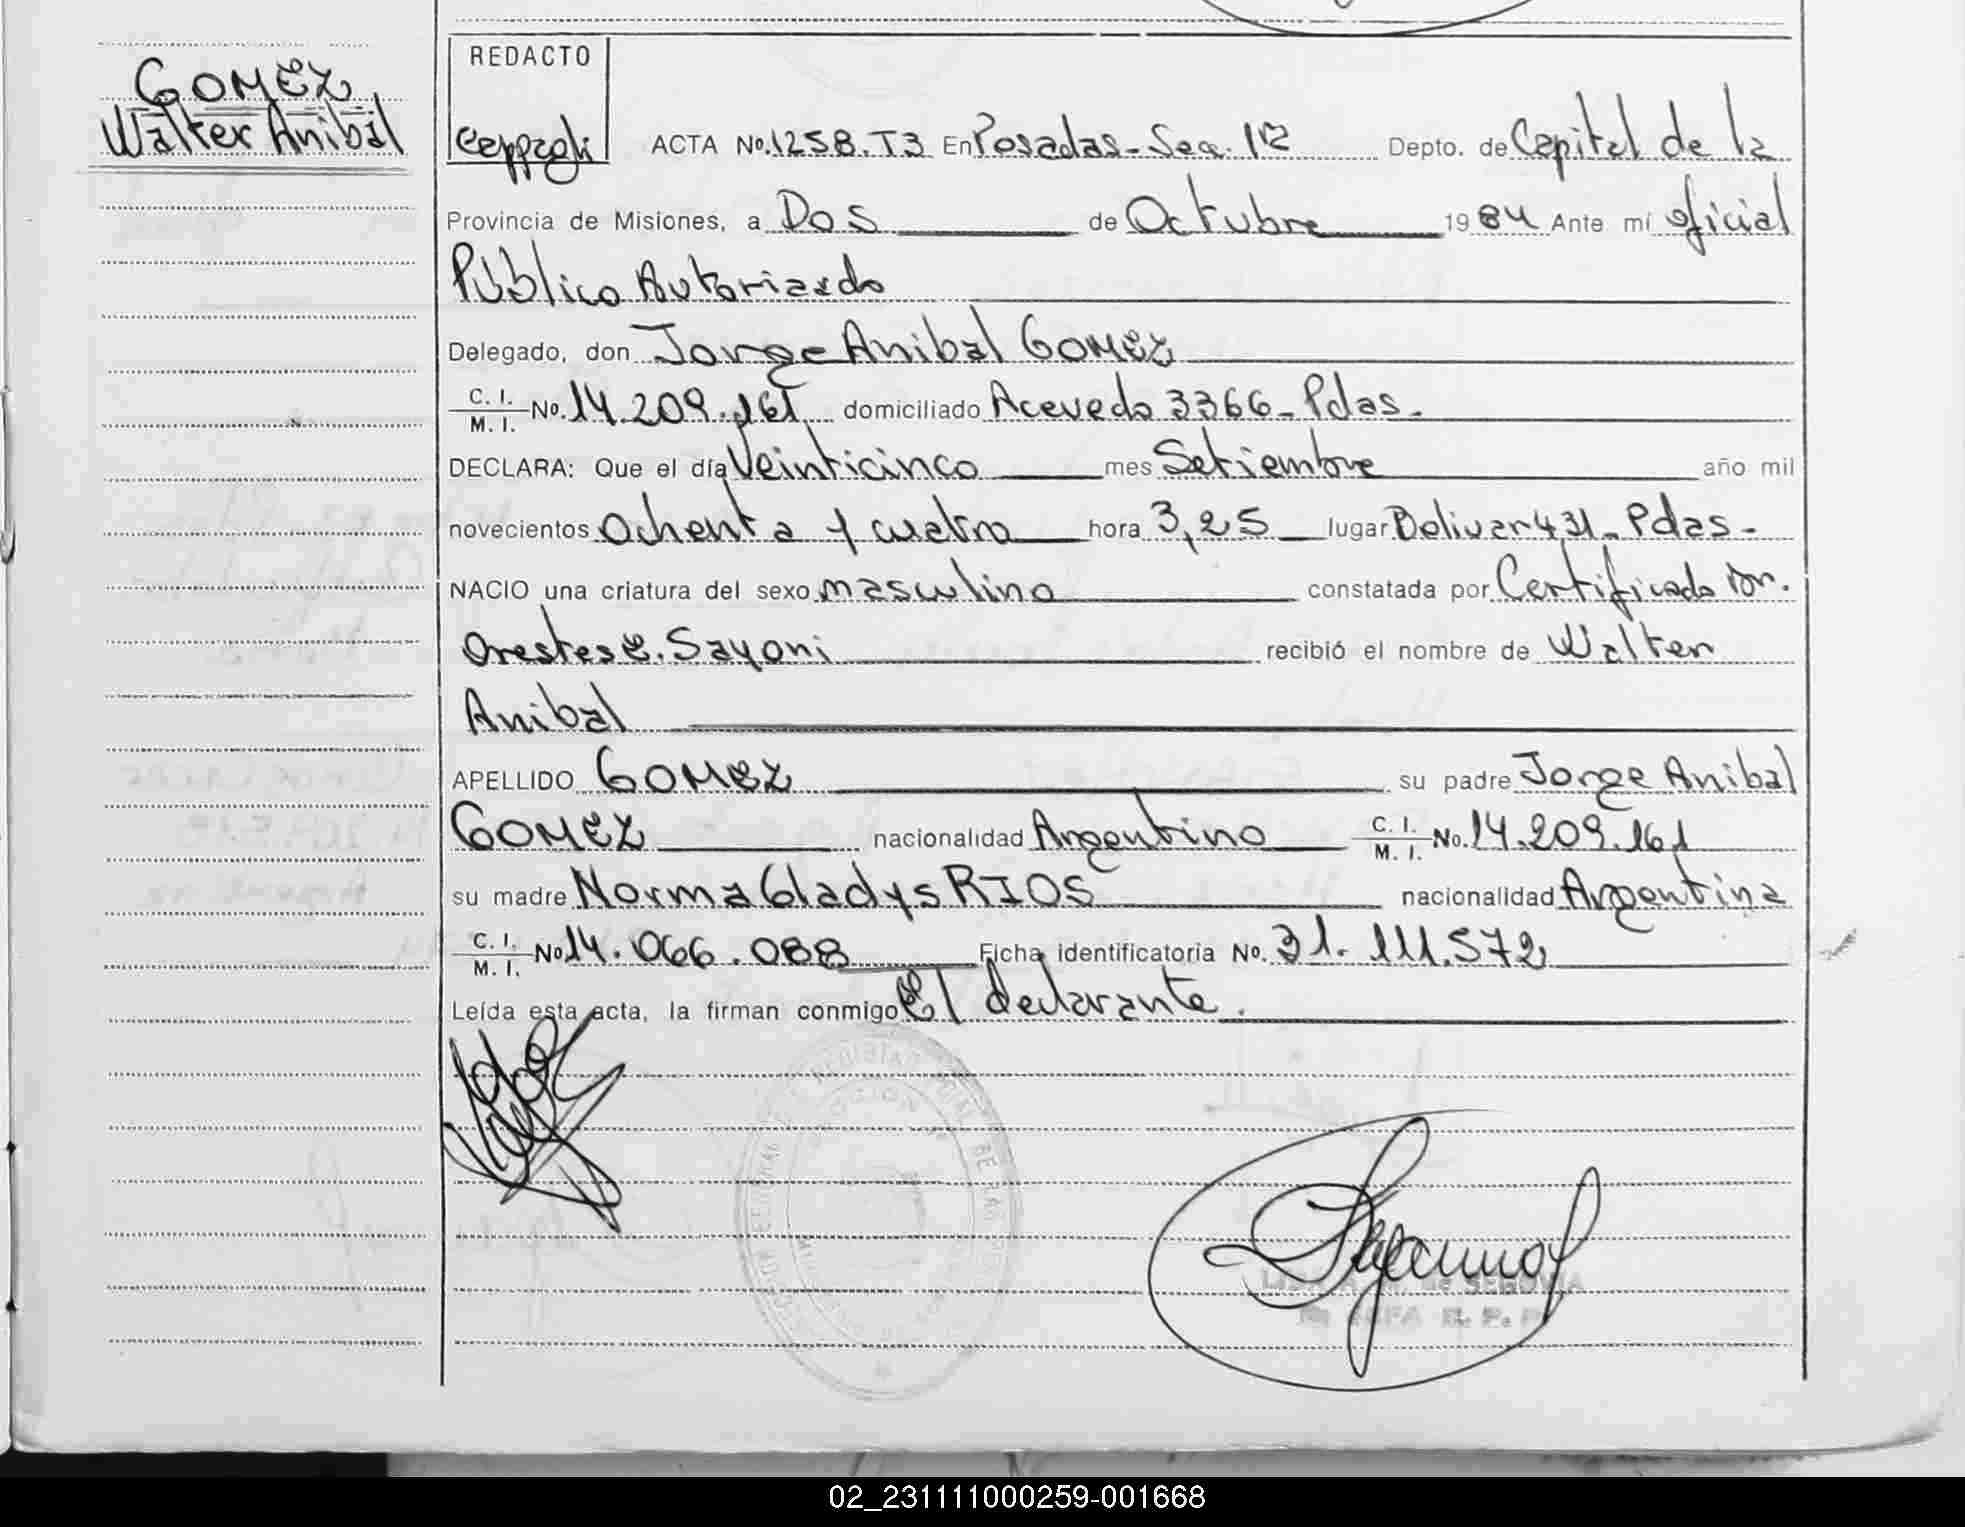 GOMEZ
Walter Anibal
REDACTO
ACTA No. 1258. T3 En Posadas - Sec. 1ra Depto. de Capital de la
Provincia de Misiones, a Dos de Octubre 1984 Ante mí oficial
Público Autorizado
Delegado, don Jorge Anibal GOMEZ
C. I. / M. I. No. 14.209.161 domiciliado Acevedo 3366 - Pdas.
DECLARA: Que el día Veinticinco mes Setiembre año mil
novecientos Ochenta y cuatro hora 3,25 lugar Bolivar 431 - Pdas -
NACIO una criatura del sexo masculino constatada por Certificado Dr.
Orestes E. Sayoni recibió el nombre de Walter
Anibal
APELLIDO GOMEZ su padre Jorge Anibal
GOMEZ nacionalidad Argentino C. I. / M. I. No. 14.209.161
su madre Norma Gladys RIOS nacionalidad Argentina
C. I. / M. I. No 14.066.088 Ficha identificatoria No. 31.111.572
Leída esta acta, la firman conmigo El declarante.
de SEGOVIA
02_231111000259-001668